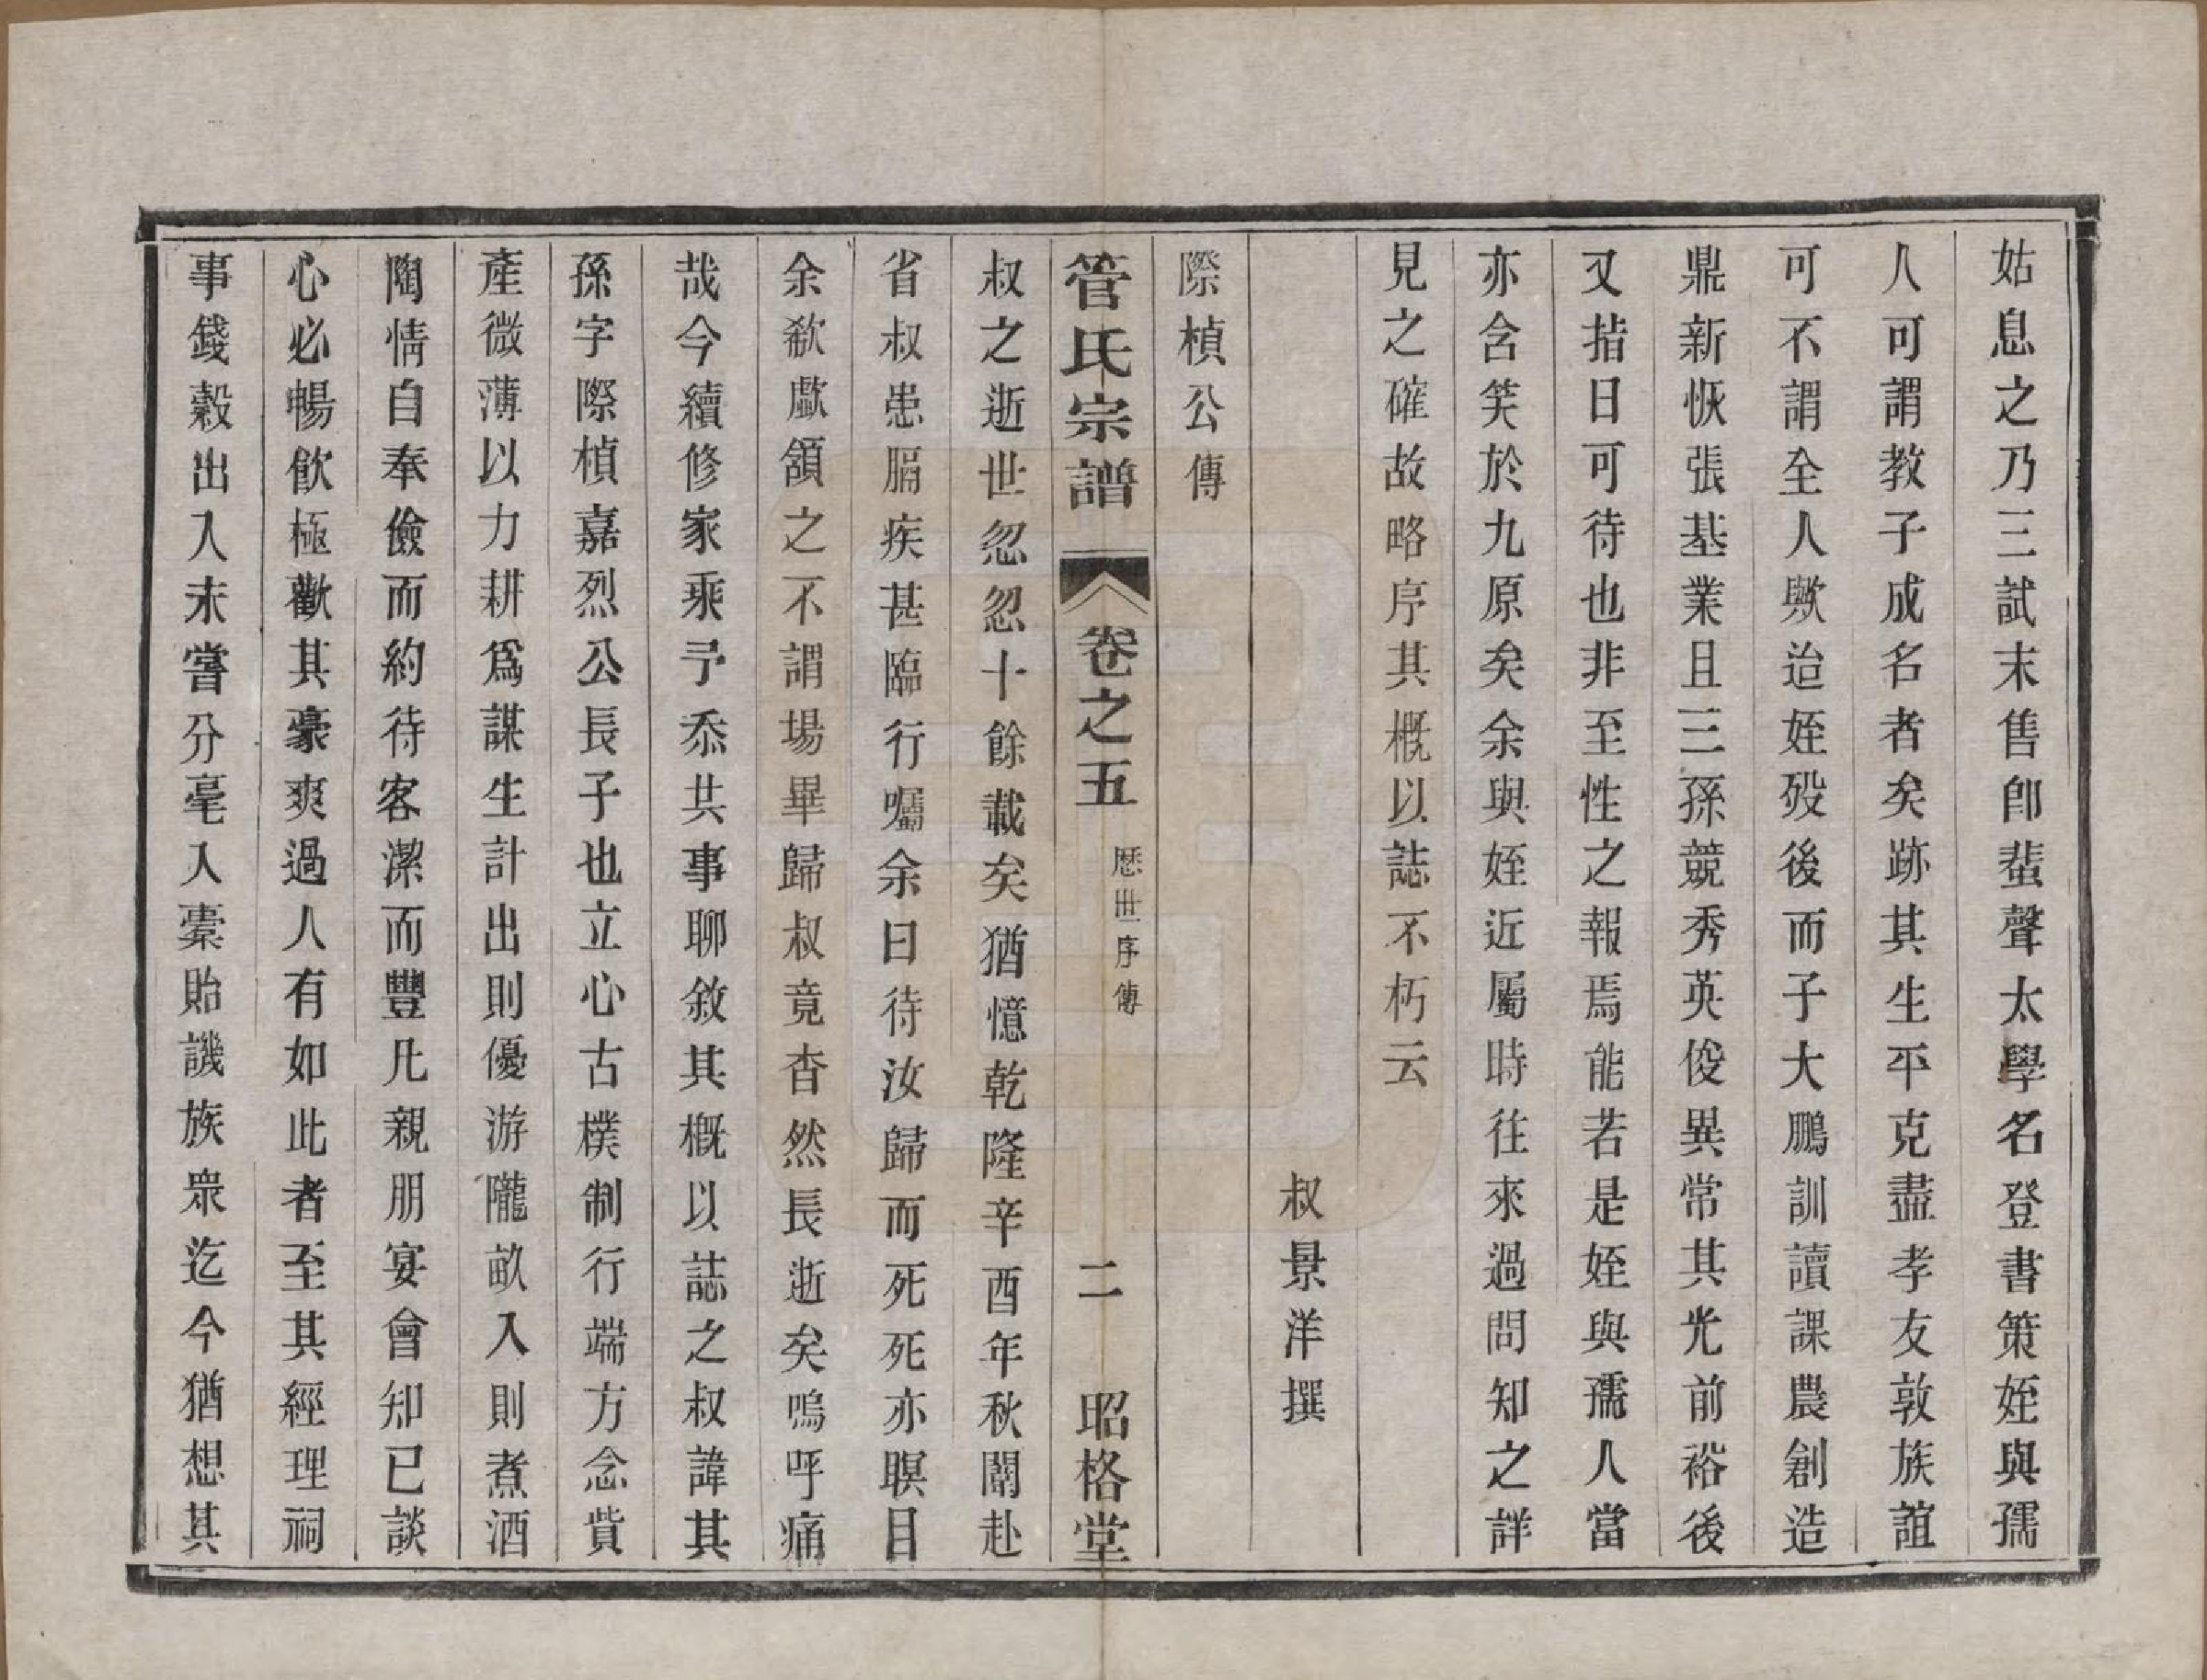 姑息之乃三試未售卽蜚聲太學名登書策姪與孺
人可謂教子成名者矣跡其生平克盡孝友敦族誼
可不謂全人歟迨姪歿後而子大鵬訓讀課農創造
鼎新恢張基業且三孫競秀英俊異常其光前裕後
又指日可待也非至性之報焉能若是姪與孺人當
亦含笑於九原矣余與姪近屬時往來過問知之詳
見之確故略序其概以誌不朽云
叔景洋撰
際楨公傳
管氏宗譜 卷之五 歷世序傳 二 昭格堂
叔之逝世忽忽十餘載矣猶憶乾隆辛酉年秋闈赴
省叔患膈疾甚臨行囑余曰待汝歸而死死亦瞑目
余欷歔頷之不謂場畢歸叔竟杳然長逝矣嗚呼痛
哉今續修家乘予忝共事聊敘其概以誌之叔諱其
孫字際楨嘉烈公長子也立心古樸制行端方念貲
產微薄以力耕爲謀生計出則優游隴畝入則煮酒
陶情自奉儉而約待客潔而豐凡親朋宴會知已談
心必暢飮極歡其豪爽過人有如此者至其經理祠
事錢穀出入未嘗分毫入橐貽譏族衆迄今猶想其